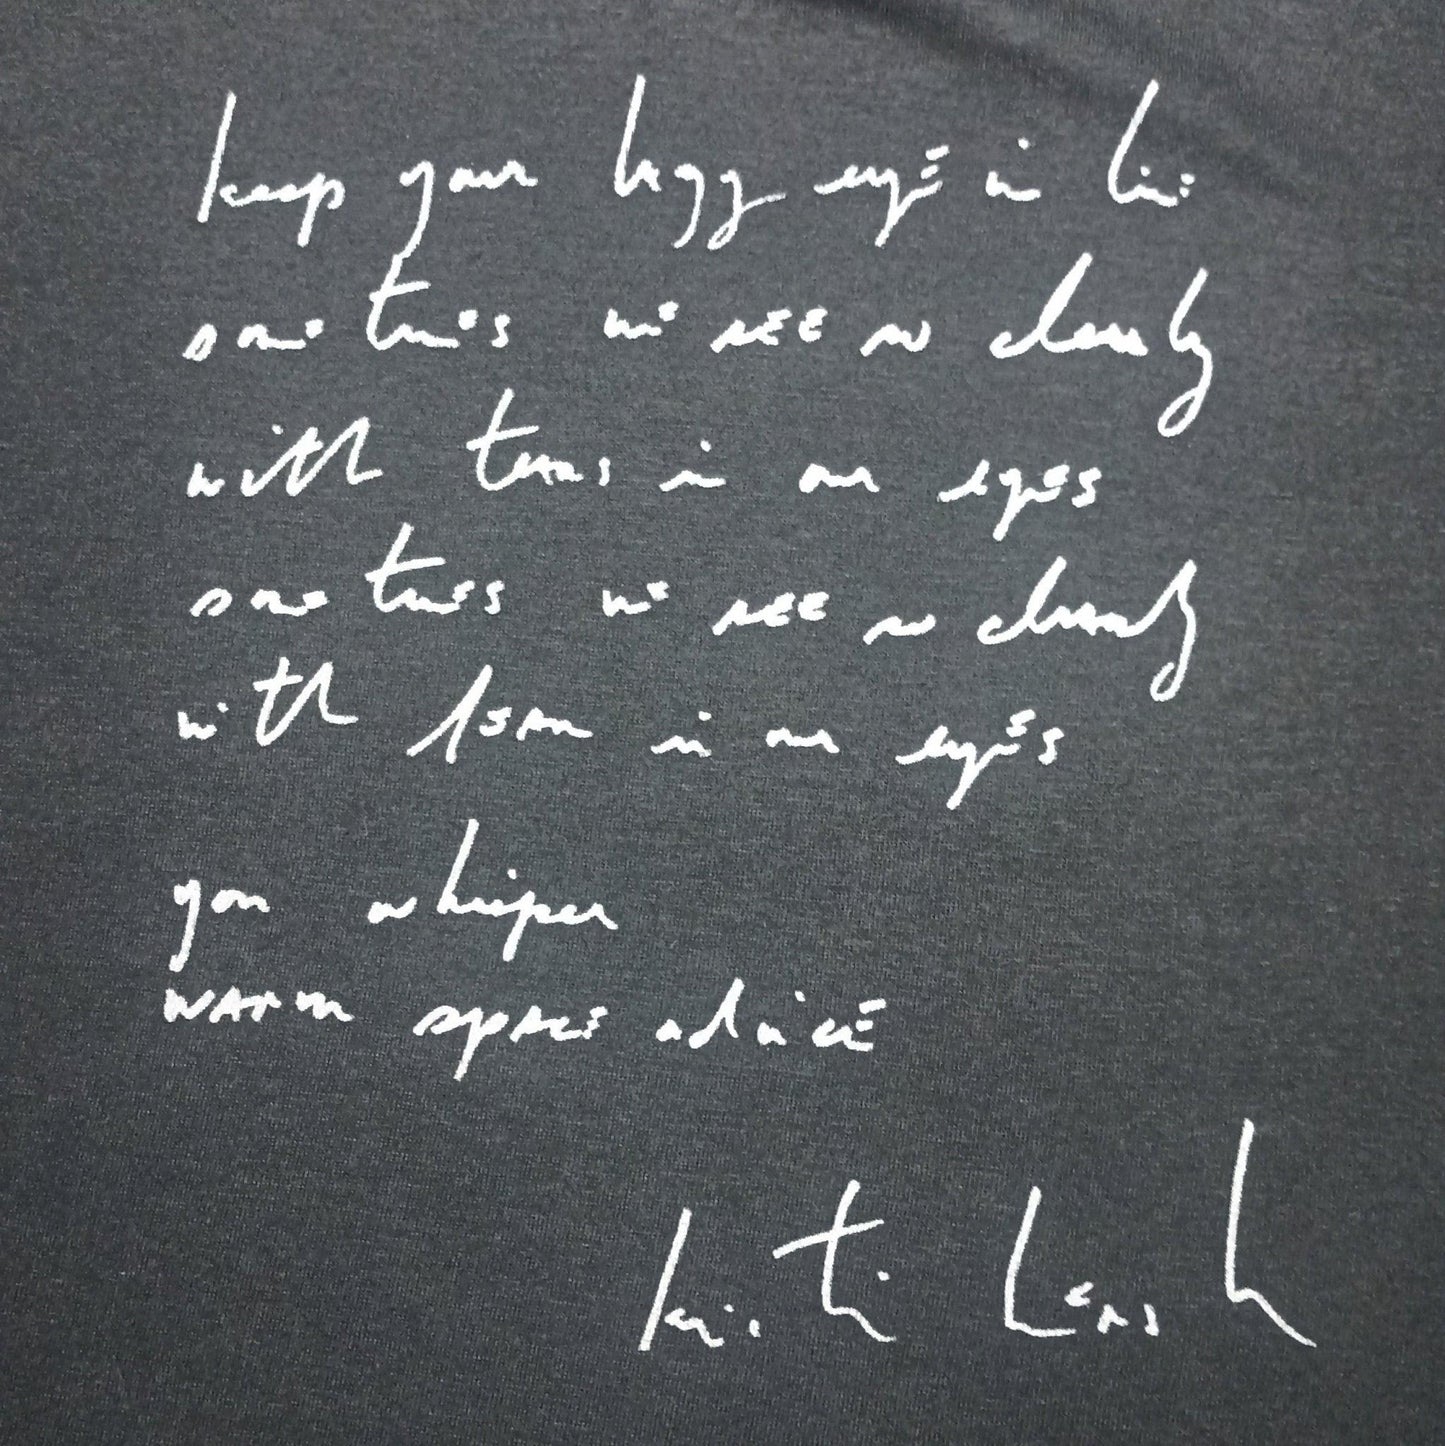 keep your buggy eye in line
sometimes we see so clearly
with tears in our eyes
sometimes we see so clearly
with fear in our eyes
you whisper
warm space advice
kristin hersh